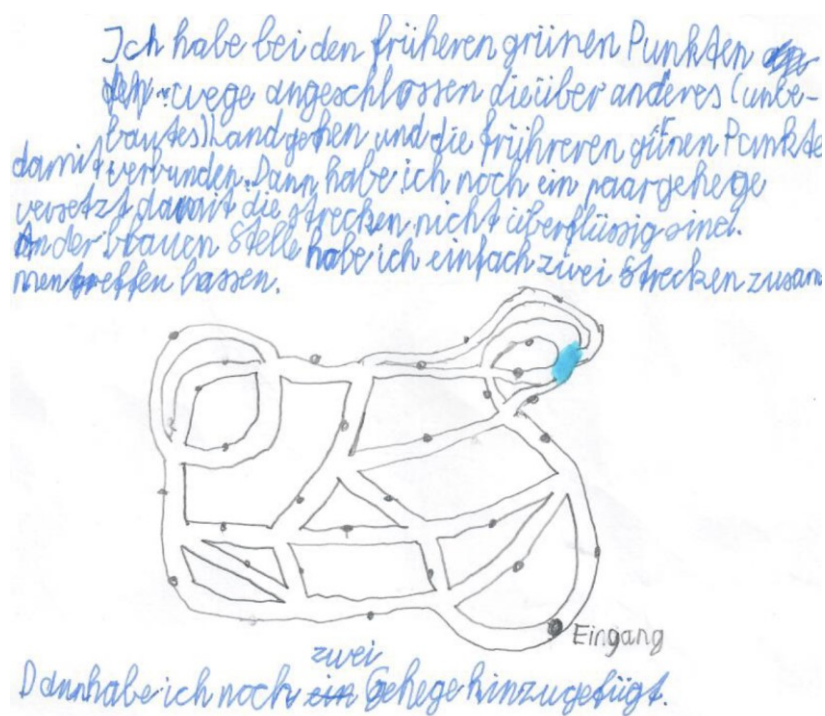 Ich habe bei den früheren grünen Punkten
wege angeschlossen die über anderes (unbe-
bautes) Land gehen und die frühreren günen Punkte
damit verbunden. Dann habe ich noch ein paar gehege
versetzt damit die strecken nicht überflüssig sind.
An der blauen Stelle habe ich einfach zwei Strecken zusam
mentreffen lassen.
Eingang
zwei
Dann habe ich noch ein Gehege hinzugefügt.